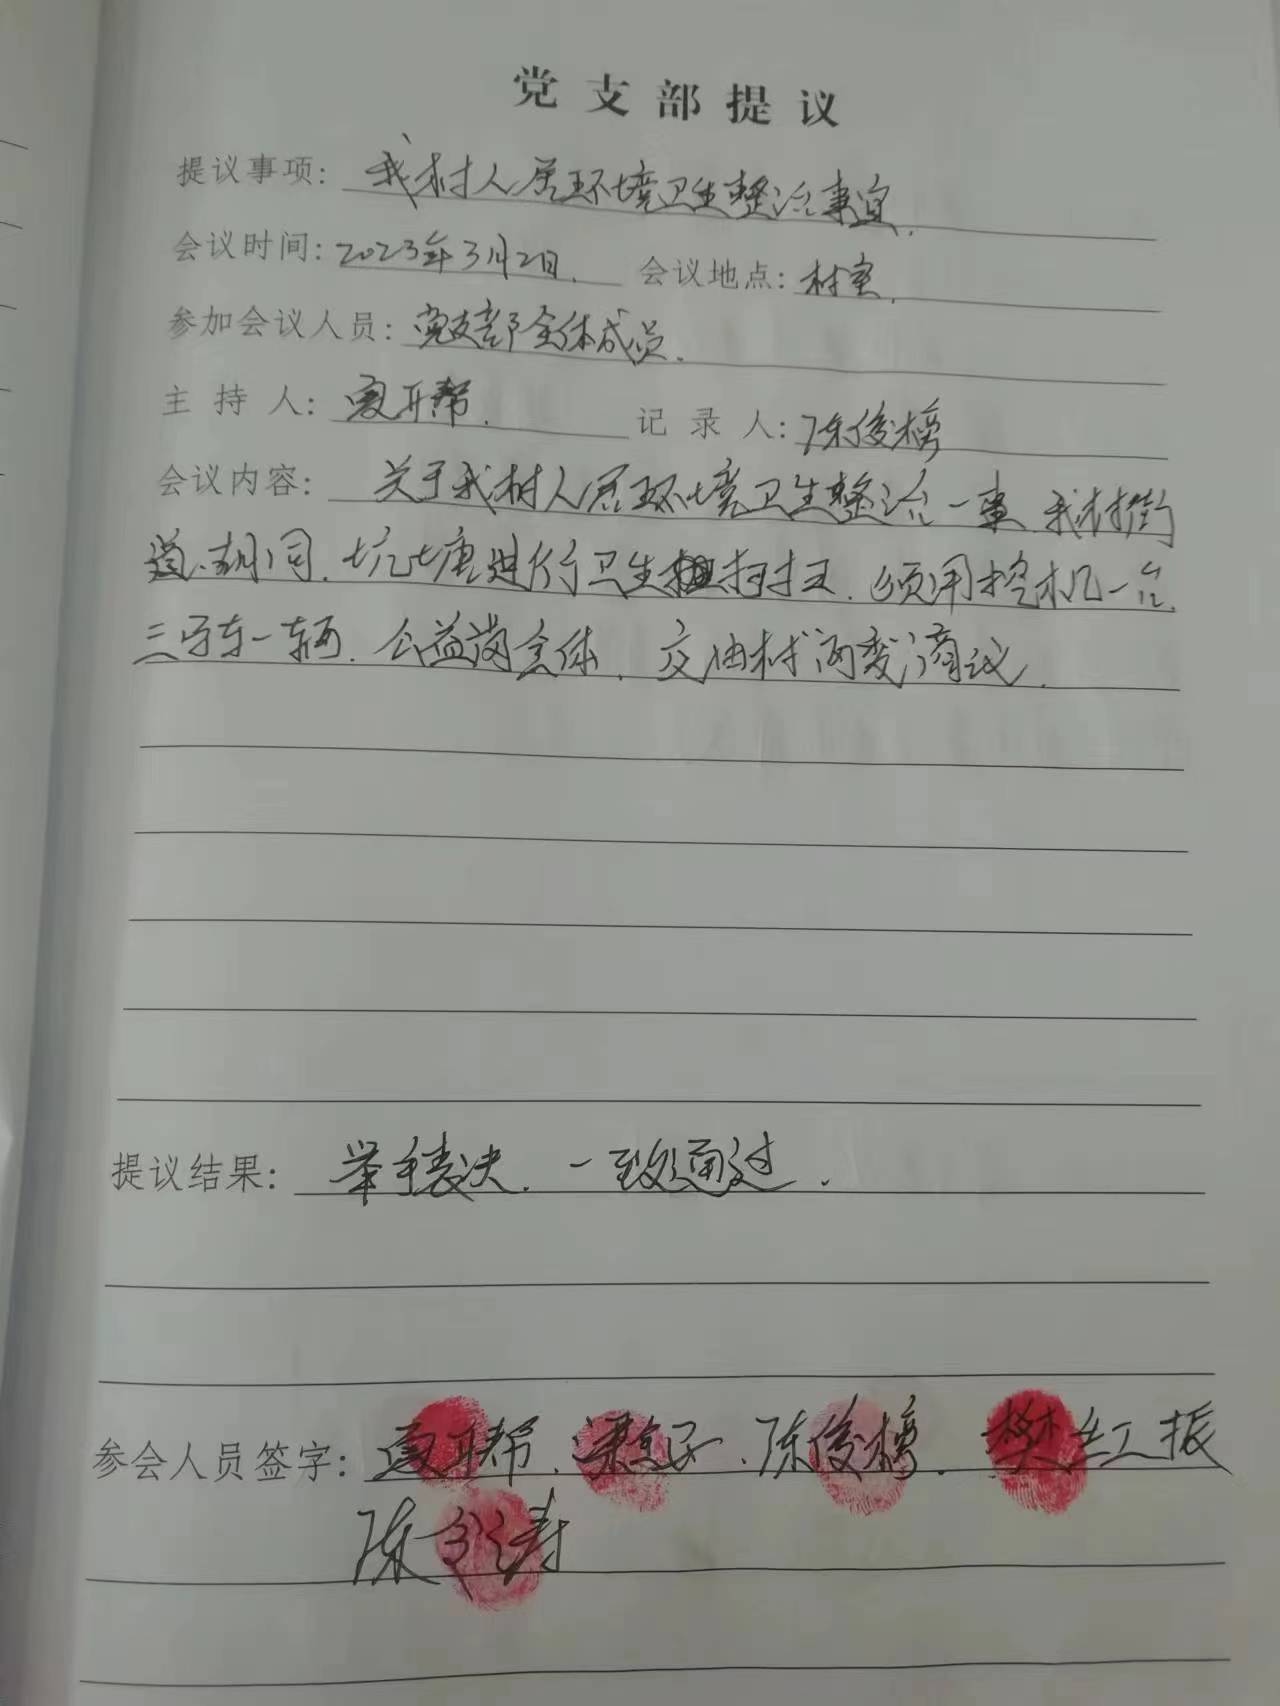 党支部提议
提议事项：我村人居环境卫生整治事宜.
会议时间：2023年3月2日. 会议地点：村室.
参加会议人员：党支部全体成员.
主持人： 记录人：陈俊榜
会议内容：关于我村人居环境卫生整治一事.我村街
道.胡同.坑塘进行卫生打扫.须用挖机一台.
三马车一辆.公益岗全体.交由村两委商议.
提议结果：举手表决.一致通过.
参会人员签字：陈俊榜.樊红振
陈 涛